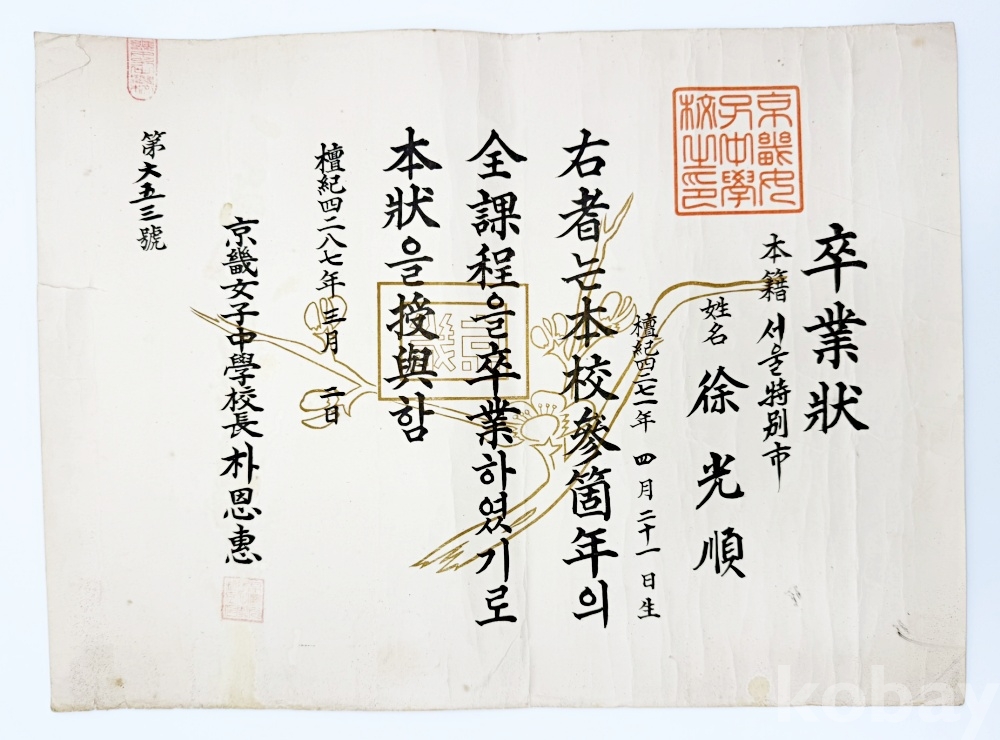 卒業狀
本籍 서울特別市
姓名 徐光順
檀紀四二七一年 四月二十一日生
右者는本校參箇年의
全課程을卒業하였기로
本狀을授與함
檀紀四二八七年三月 二日
京畿女子中學校長朴恩惠
第六五三號
京畿女子中學校之印
kobay